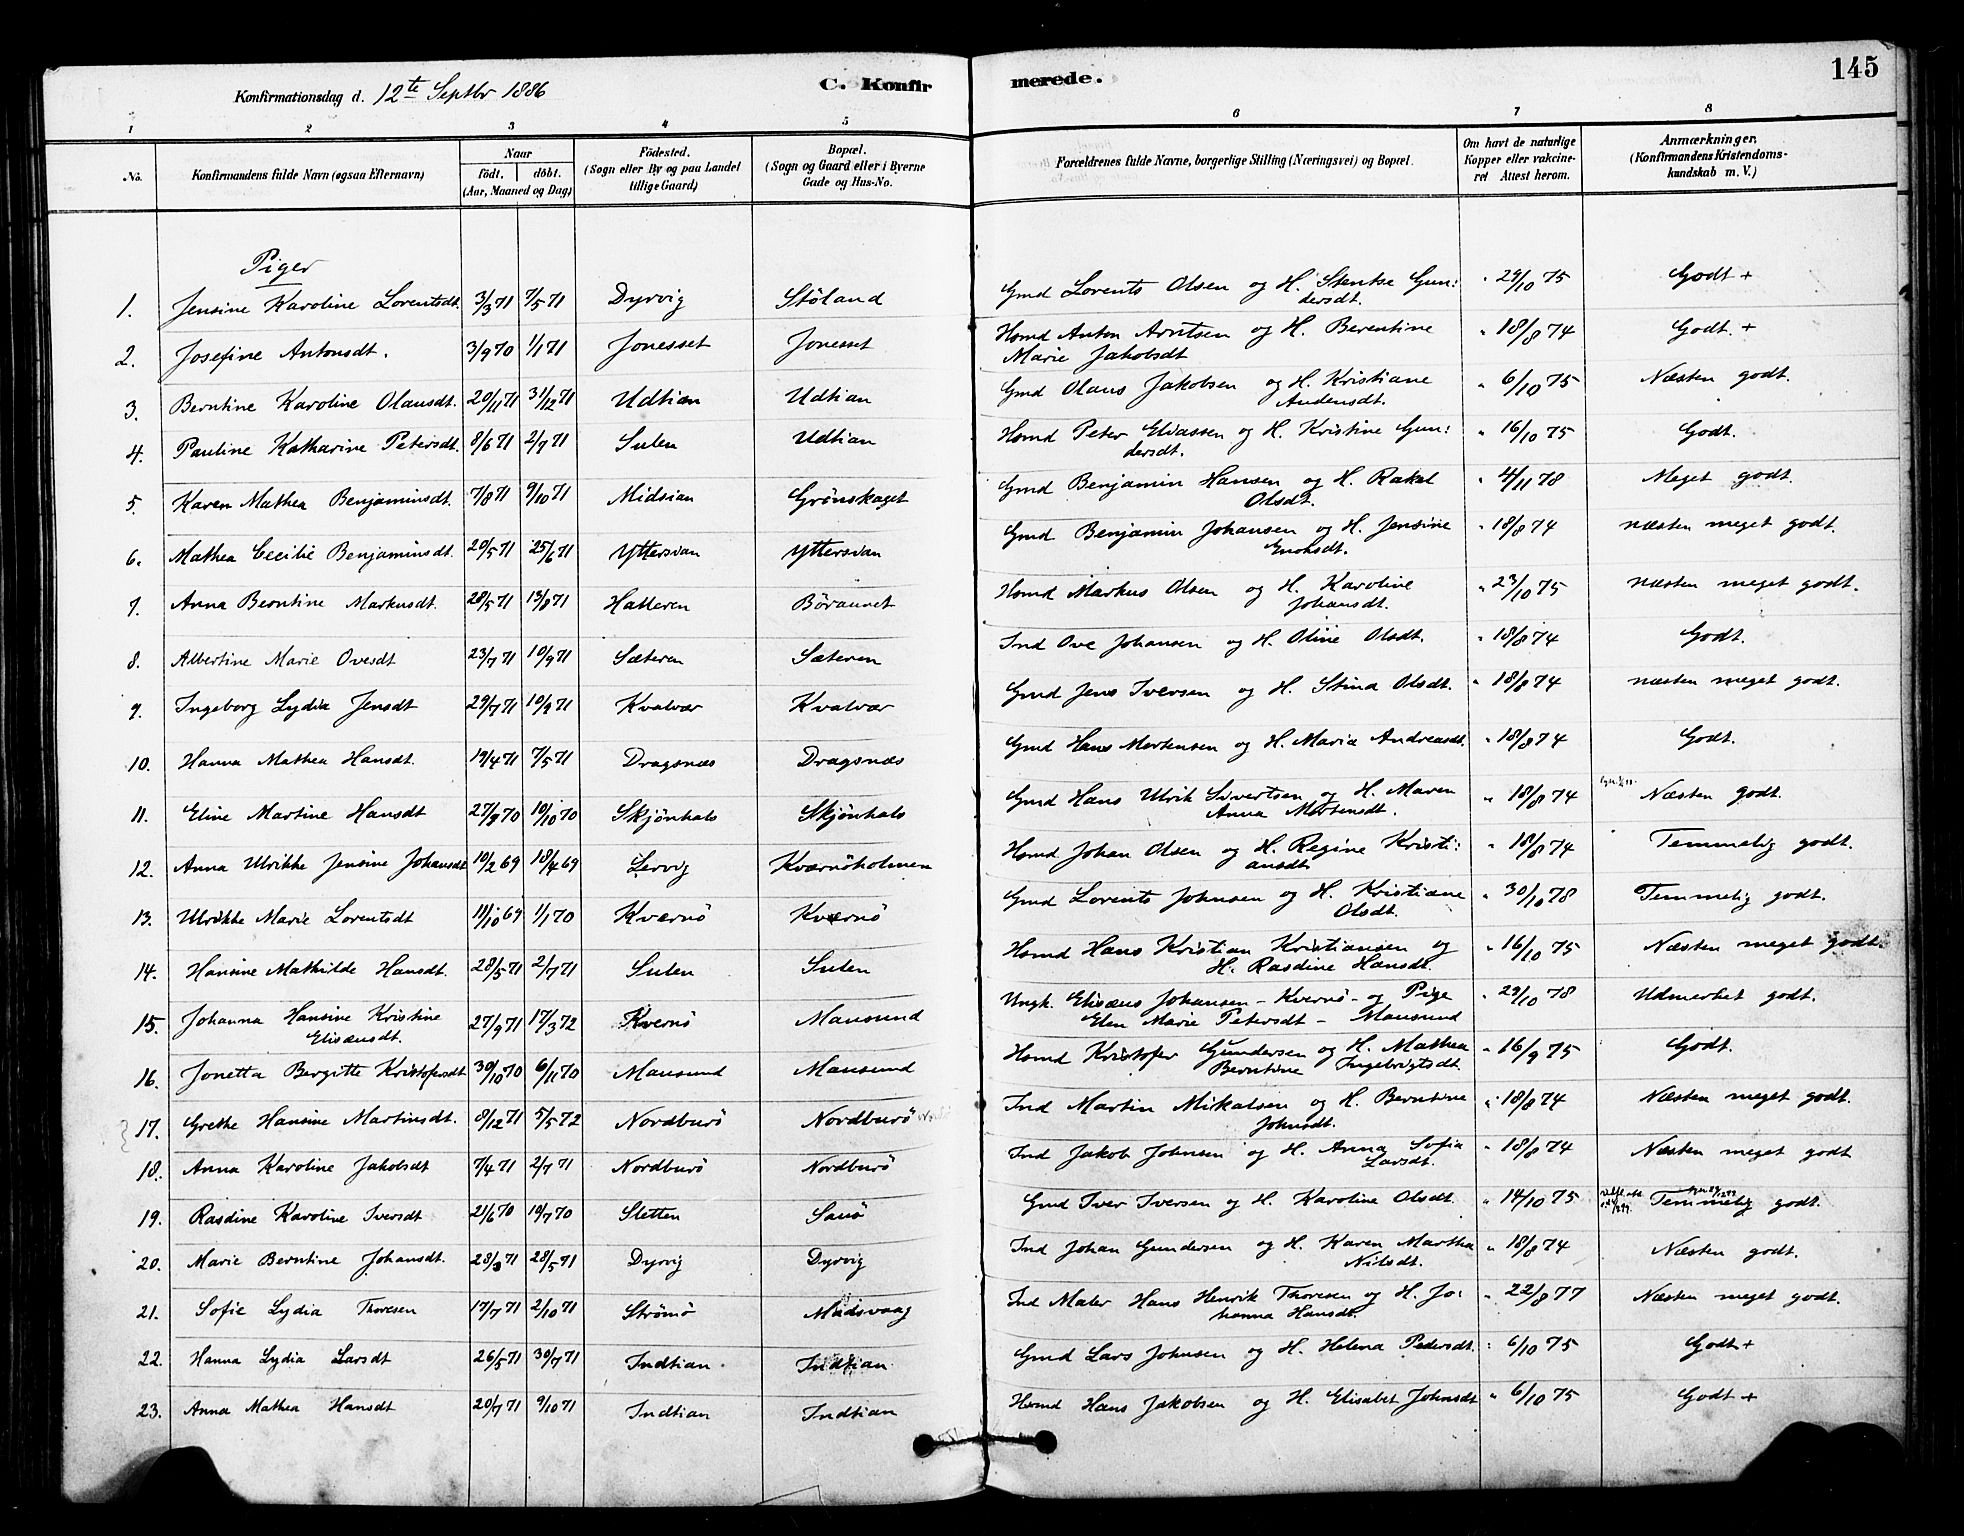 145
Konfirmationsdag d. 12te Septbr 1886 C. Konfirmerede.
1 2 3 4 5 6 7 8
No. Konfirmandens fulde Navn (ogsaa Efternavn) Naar födt. döbt. (Aar, Maaned og Dag) Födested. (Sogn eller By og paa Landet tillige Gaard) Bopæl. (Sogn og Gaard eller i Byerne Gade og Hus-No. Forældrenes fulde Navne, borgerlige Stilling (Næringsvei) og Bopæl. Om havt de naturlige Kopper eller vakcineret Attest herom. Anmærkninger. (Konfirmandens Kristendomskundskab m. V.)
Piger
1. Jensine Karoline Lorentsdt. 3/3 71 7/5 71 Dyrvig Stöland Gmd Lorents Olsen og H. Stentse Gundersdt. " 29/10 75 Godt +
2. Josefine Antonsdt. 3/9 70 1/1 71 Jonesset Jonesset Hsmd Anton Arntsen og H. Berentine Marie Jakobsdt " 18/8 74 Godt. +
3. Berntine Karoline Olausdt. 20/11 71 31/12 71 Udtian Udtian Gmd Olaus Jakobsen og H. Kristiane Andensdt. " 6/10 75 Næsten godt.
4. Pauline Katharine Petersdt. 8/6 71 2/7 71 Sulen Udtian Hsmd Peter Eliassen og H. Kristine Gundersdt. " 16/10 75 Godt.
5. Karen Mathea Benjaminsdt. 7/8 71 9/10 71 Midtian Grönskaget Gmd Benjamin Hansen og H. Rakel Olsdt. " 4/11 78 Meget godt.
6. Mathea Cecilie Benjaminsdt. 20/5 71 25/6 71 Yttersian Yttersian Gmd Benjamin Johansen og H. Jensine Enoksdt. " 18/8 74 næsten meget godt.
7. Anna Berntine Markusdt. 28/5 71 13/8 71 Hatleren Böraunet Hsmd Markus Olsen og H. Karoline Johansdt. " 23/10 75 næsten meget godt.
8. Albertine Marie Ovesdt 23/7 71 10/9 71 Sæteren Sæteren Ind Ove Johansen og H. Oline Olsdt. " 18/8 74 Godt.
9. Ingeborg Lydia Jensdt 29/7 71 10/9 71 Kvalvær Kvalvær Gmd Jens Iversen og H. Stina Olsdt. " 18/8 74 næsten meget godt.
10. Hanna Mathea Hansdt. 19/4 71 7/5 71 Dragsnæs Dragsnæs Gmd Hans Mortensen og H. Maria Andreasdt. " 18/8 74 Godt.
11. Eline Martine Hansdt 27/9 70 10/10 70 Skjönhals Skjönhals Gmd Hans Ulrik Sivertsen og H. Maren Anna Mortensdt. " 18/8 74 Næsten godt.
12. Anna Ulrikke Jensine Johansdt 10/2 69 18/4 69 Lervig Kværnöholmen Hsmd Johan Olsen og H. Regine Kristiansdt. " 18/8 74 Temmelig godt.
13. Ulrikke Marie Lorentsdt 11/10 69 1/1 70 Kværnö Kværnö Gmd Lorents Johnsen og H. Kristiane Olsdt. " 30/10 78 Temmelig godt.
14. Hansine Mathilde Hansdt. 28/5 71 2/7 71 Sulen Sulen Hsmd Hans Kristian Kristiansen og H. Rasdine Hansdt. " 16/10 75 Næsten meget godt.
15. Johanna Hansine Kristine Elisæusdt. 27/9 71 17/3 72 Kvernö Mausund Ungk. Elisæus Johansen - Kvernö - og Pige Elen Marie Petersdt - Mausund " 29/10 78 Udmerket godt.
16. Jonetta Bergitte Kristofersdt 30/10 70 6/11 70 Mausund Mausund Hsmd Kristofer Gundersen og H. Mathea Berntine Ingebrigtsdt. " 16/9 75 Godt.
17. Grethe Hansine Martinsdt. 8/12 71 5/5 72 Nordburö Nordburö Ind Martin Mikalsen og H. Berntine Johnsdt. " 18/8 74 Næsten meget godt.
18. Anna Karoline Jakobsdt 7/4 71 2/7 71 Nordburö Nordburö Ind Jakob Johnsen og H. Anna Sofia Larsdt. " 18/8 74 Næsten meget godt
19. Rasdine Karoline Iversdt 21/6 70 19/7 70 Sletten Sanö Gmd Iver Iversen og H. Karoline Olsdt. " 14/10 75 Temmelig godt.
20. Marie Berntine Johansdt. 28/3 71 28/5 71 Dyrvig Dyrvig Ind Johan Gundersen og H. Karen Martha Nilsdt. " 18/8 74 Næsten godt.
21. Sofie Lydia Thoresen 17/7 71 2/10 71 Strömö Madsvaag Ind Maler Hans Henrik Thoresen og H. Johanna Hansdt. " 22/8 77 Næsten meget godt.
22. Hanna Lydia Larsdt 26/5 71 30/7 71 Indtian Indtian Gmd Lars Johnsen og H. Helena Pedersdt. " 6/10 75 Godt +
23. Anna Mathea Hansdt 20/7 71 9/10 71 Indtian Indtian Hsmd Hans Jakobsen og H. Elisabet Johnsdt " 6/10 75 Godt +